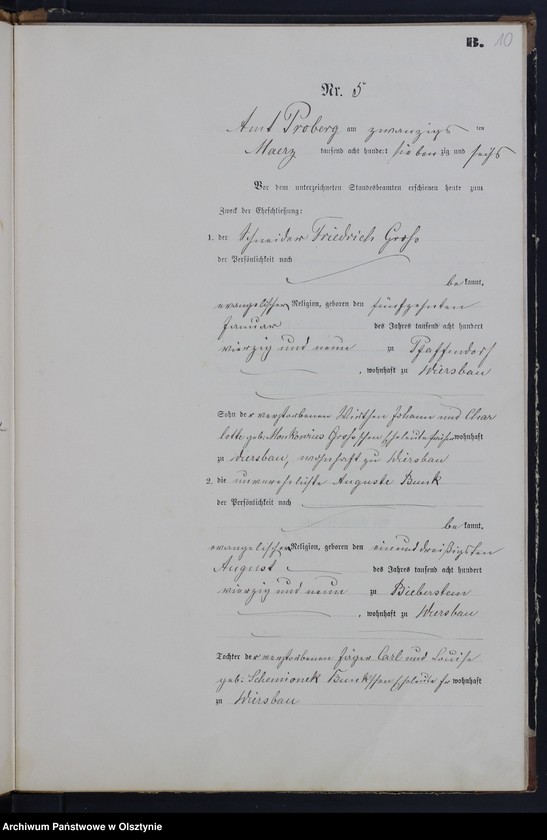 B. 10
Nr. 5
Amt Proberg am zwanzigsten
Maerz tausend acht hundert siebenzig und sechs
Vor dem unterzeichneten Standesbeamten erschienen heute zum
Zweck der Eheschließung:
1. der Schneider Friedrich
der Persönlichkeit nach
bekannt,
evangelischer Religion, geboren den fünfzehnten
Januar des Jahres tausend acht hundert
vierzig und neun zu Pfaffendorf
, wohnhaft zu Wiersbau
Sohn der verstorbenen Wirthen Johann und Char
lotte geb. wohnhaft
zu Wiersbau, wohnhaft zu Wiersbau
2. die unverehelichte Auguste Bunk
der Persönlichkeit nach
bekannt,
evangelischer Religion, geboren den einunddreißigsten
August des Jahres tausend acht hundert
vierzig und neun zu Bieberstein
, wohnhaft zu Wiersbau
Tochter der verstorbenen Jäger Carl und Louise
geb. wohnhaft
zu Wiersbau
Archiwum Państwowe w Olsztynie